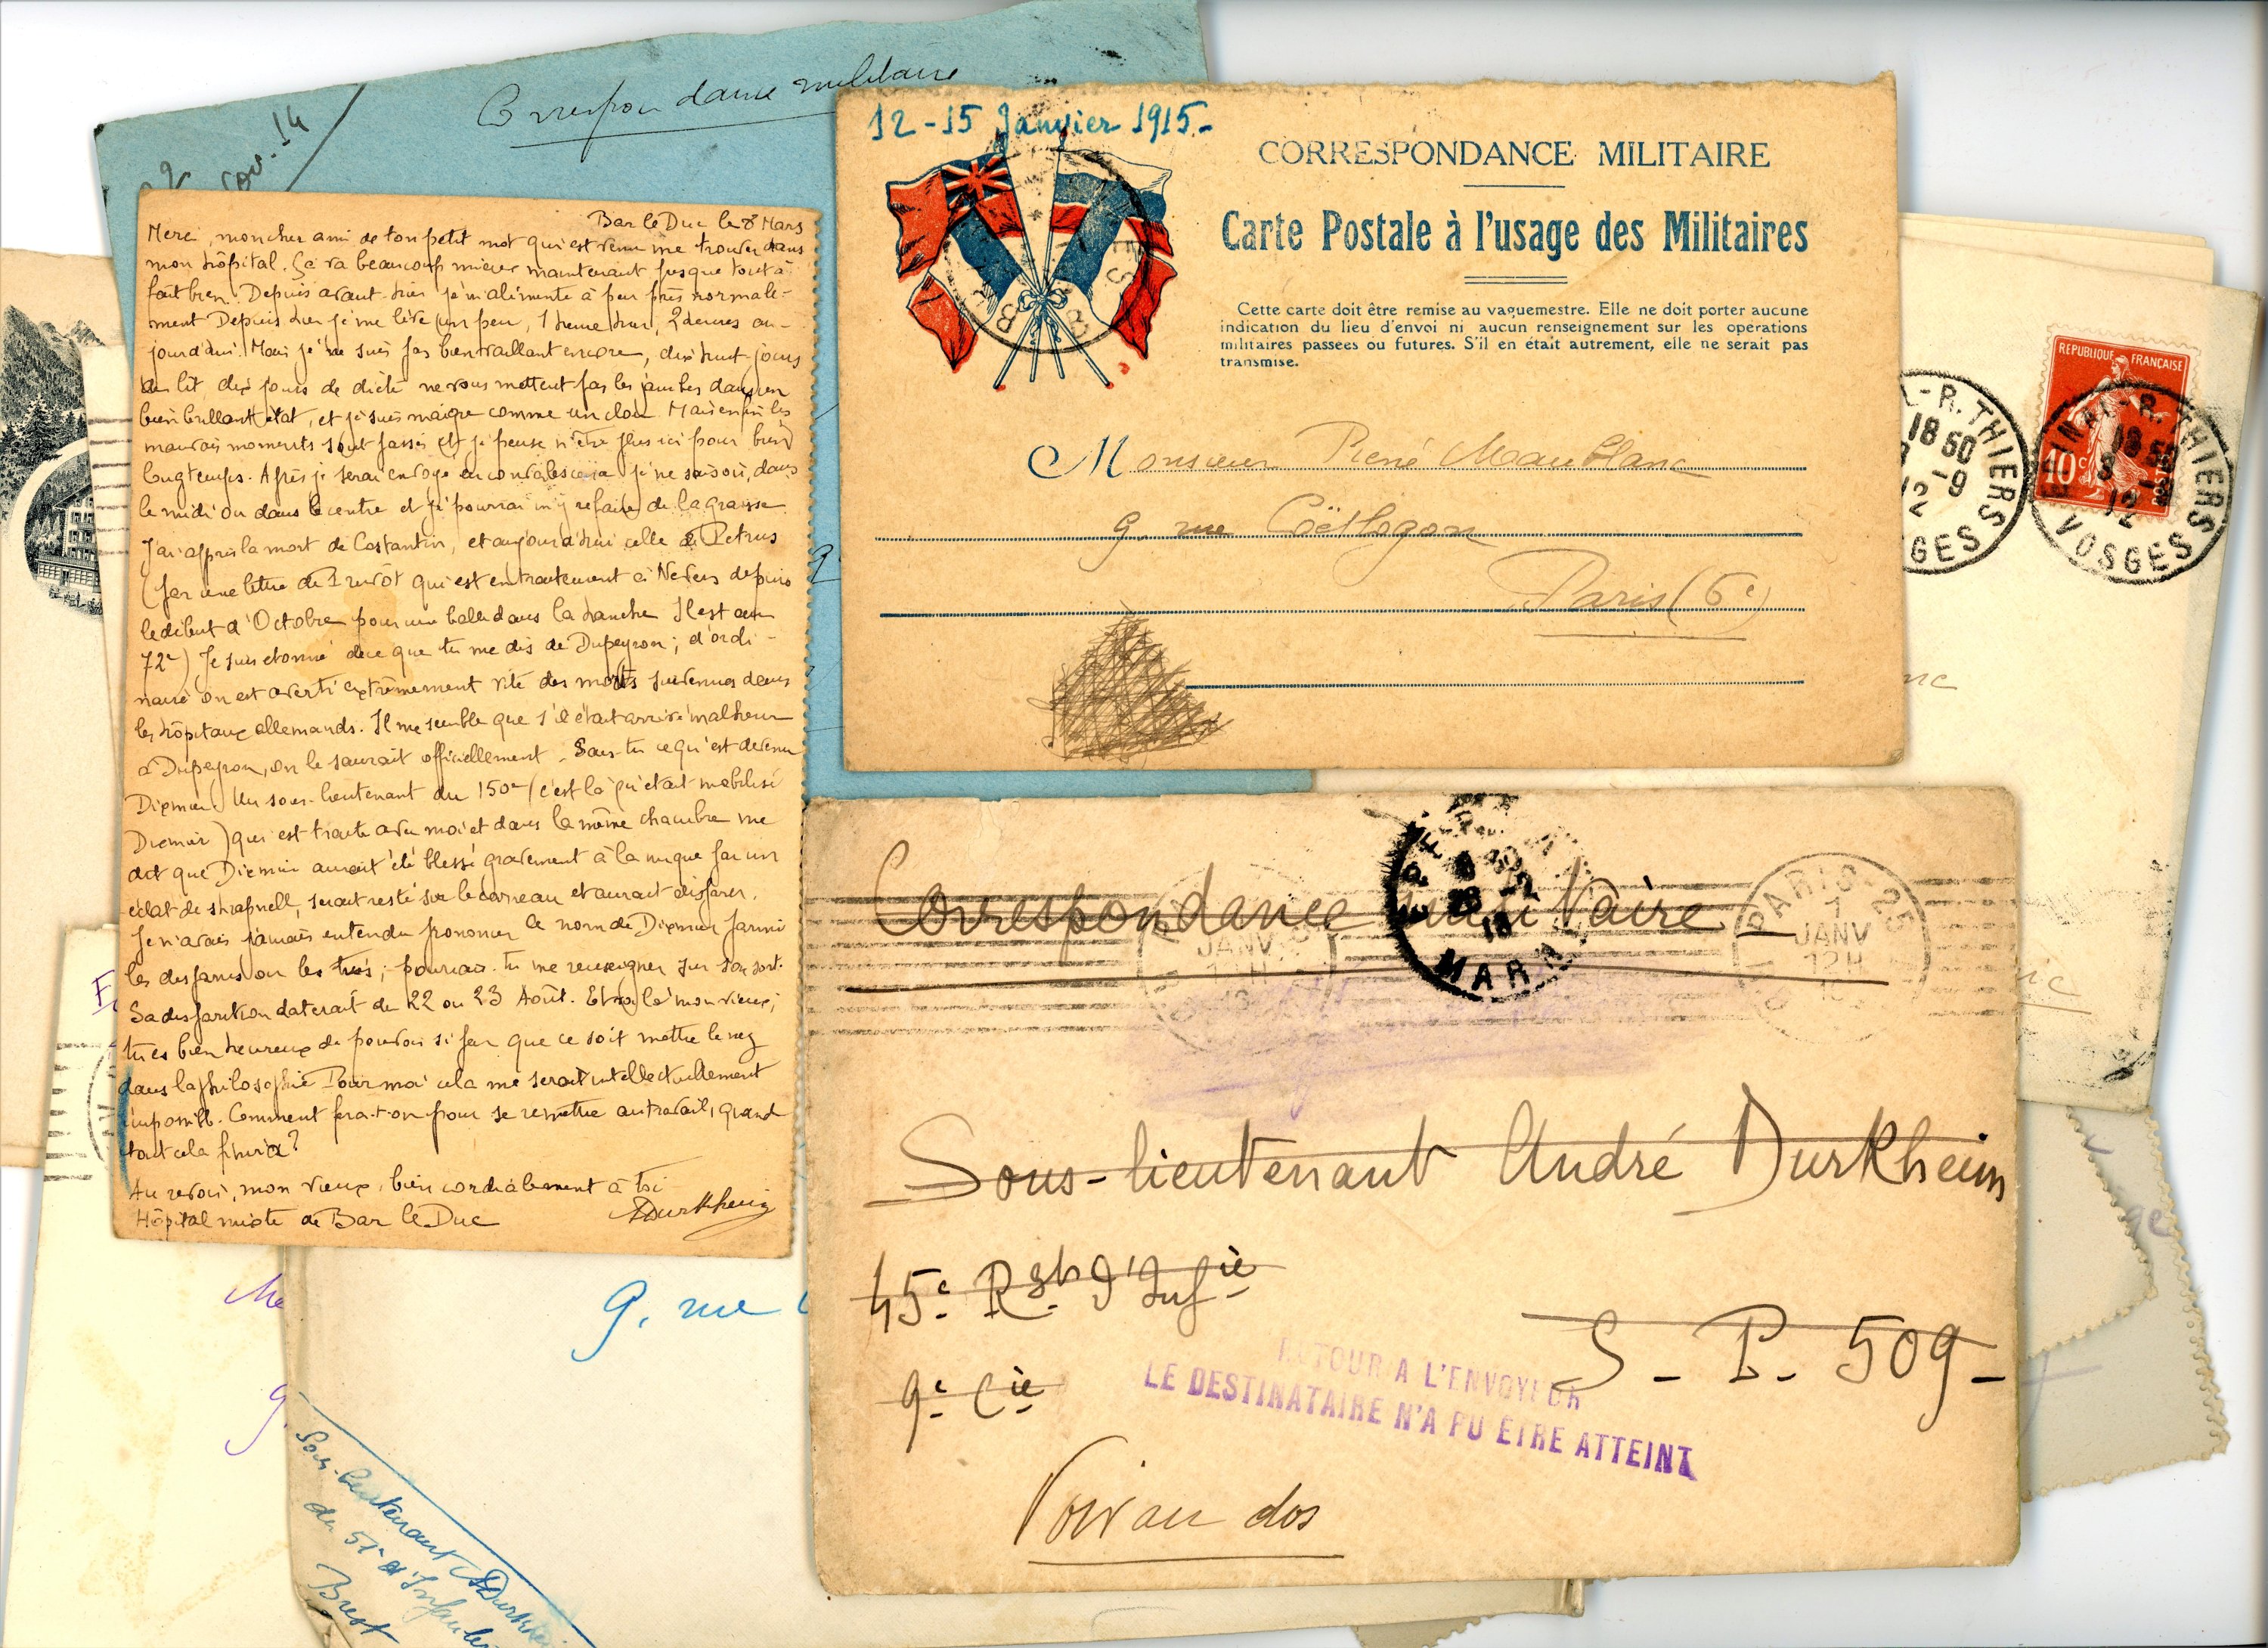 Correspondance militaire
nov. 14
Bar le Duc le 8 Mars
Merci, mon cher ami de ton petit mot qui est venu me trouver dans
mon hôpital. Ça va beaucoup mieux maintenant presque tout à
fait bien. Depuis avant-hier je m'alimente à peu près normale-
ment Depuis hier je me lève un peu, 1 heure hier, 2 heures au-
jourd'hui. Mais je ne suis pas bien vaillant encore, dix huit jours
de lit, dix jours de diète ne vous mettent pas les jambes dans un
bien brillant état, et je suis maigre comme un clou Mais enfin les
mauvais moments sont passés et je pense n'être plus ici pour bien
longtemps. Après je serai envoyé en convalescence je ne sais où, dans
le midi ou dans le centre et je pourrai m'y refaire de la graisse
J'ai appris la mort de Costantin, et aujourd'hui celle de Petrus
(par une lettre de qui est en traitement à Nevers depuis
le début d'Octobre pour une balle dans la hanche Il est au
72e) Je suis étonné de ce que tu me dis de Dupeyron ; d'ordi-
naire on est averti extrêmement vite des morts survenues dans
les hôpitaux allemands. Il me semble que s'il était arrivé malheur
à Dupeyron, on le saurait officiellement. Sais-tu ce qu'est devenu
Diemer. Un sous-lieutenant du 150e (c'est là qu'était mobilisé
Diemer) qui est traité avec moi et dans la même chambre me
dit que Diemer aurait été blessé gravement à la nuque par un
éclat de shrapnell, serait resté sur le carreau et aurait disparu.
Je n'avais jamais entendu prononcer le nom de Diemer parmi
les disparus ou les tués ; pourrais-tu me renseigner sur son sort.
Sa disparition daterait du 22 ou 23 Août. Et voilà mon vieux ;
tu es bien heureux de pouvoir si peu que ce soit mettre le nez
dans la philosophie Pour moi cela me serait intellectuellement
impossible. Comment fera-t-on pour se remettre au travail, quand
tout cela finira ?
Au revoir, mon vieux, bien cordialement à toi
ADurkheim
Hôpital mixte de Bar le Duc
12-15 Janvier 1915.-
CORRESPONDANCE MILITAIRE
Carte Postale à l'usage des Militaires
Cette carte doit être remise au vaguemestre. Elle ne doit porter aucune
indication du lieu d'envoi ni aucun renseignement sur les opérations
militaires passées ou futures. S'il en était autrement, elle ne serait pas
transmise.
Monsieur René Maublanc
9 rue Coëtlogon
Paris (6e)
REPUBLIQUE FRANÇAISE
10c
L-R. THIERS
18 50
-9
12
GES
EPINAL-R. THIERS
18 50
12
VOSGES
nc
Correspondance militaire
MAR
JANV
PARIS-25
1
JANV
12H
Sous-lieutenant André Durkheim
45e Rgt d'Infie
9e Cie
S. P. 509
RETOUR A L'ENVOYEUR
LE DESTINATAIRE N'A PU ÊTRE ATTEINT
Voir au dos
9, rue
Sous-lieutenant ADurkheim
du 51e d'Infanterie
Brest